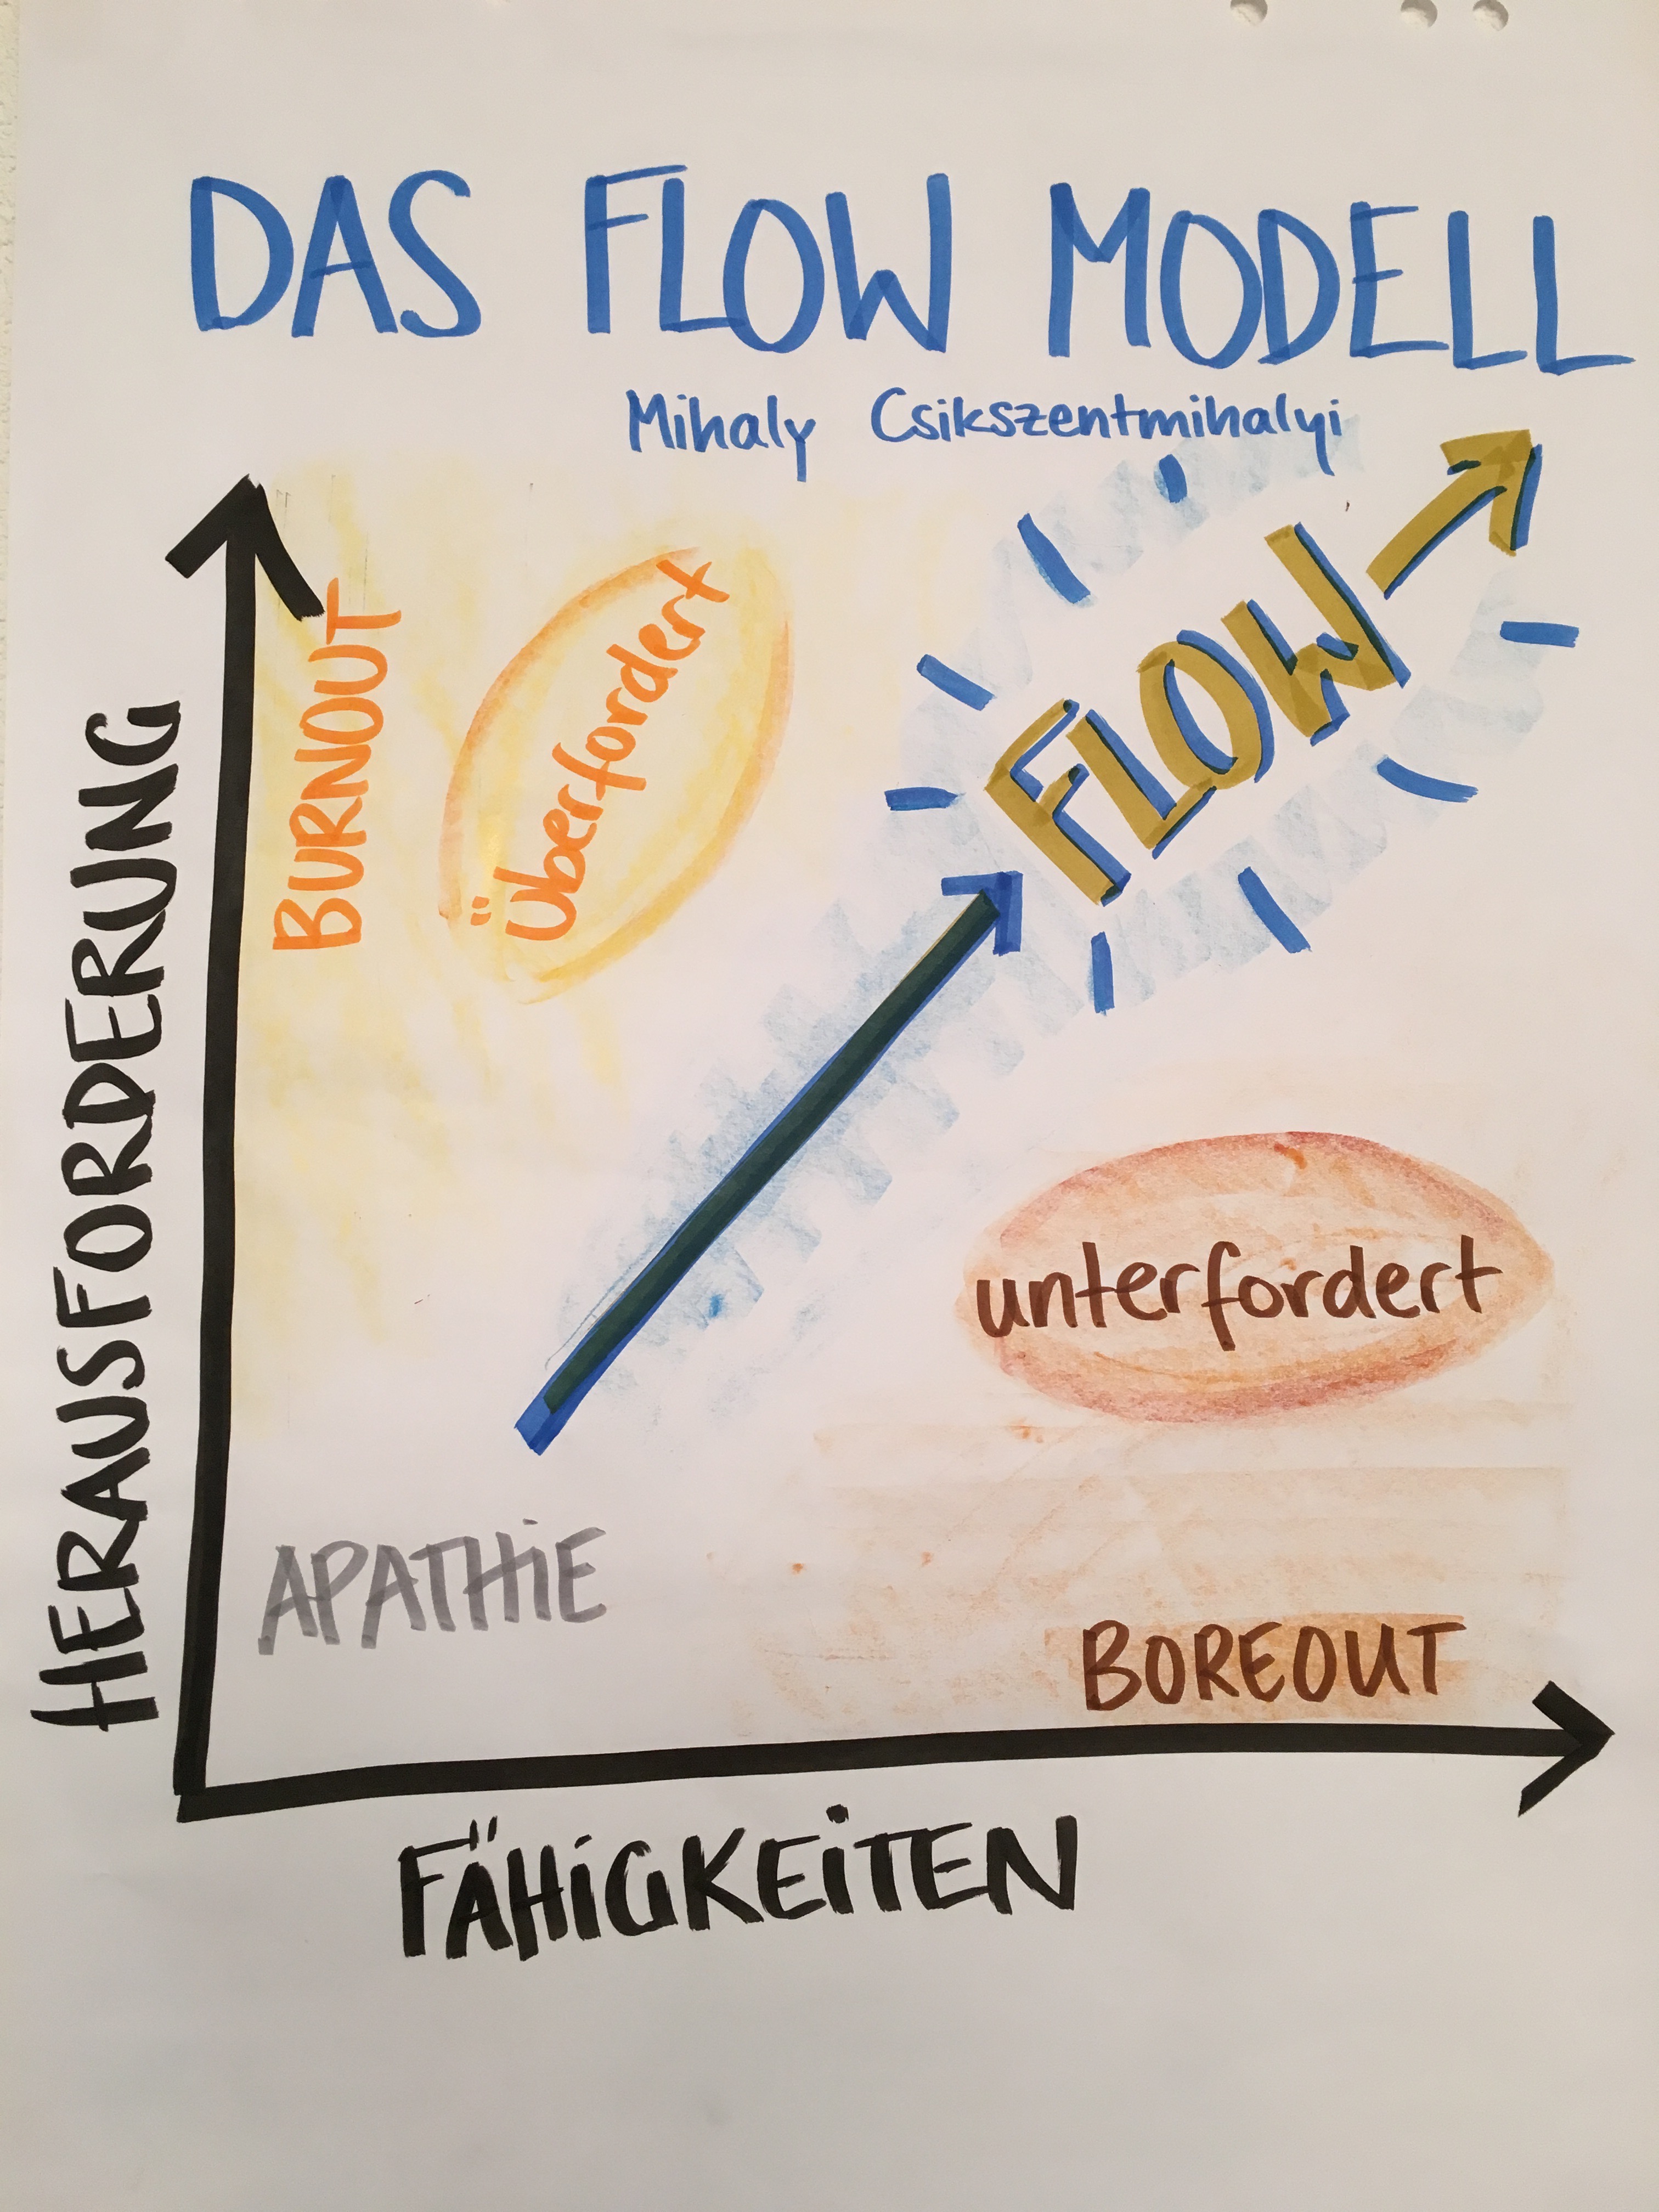 DAS FLOW MODELL
Mihaly Csikszentmihalyi
HERAUSFORDERUNG
BURNOUT
Überfordert
FLOW
unterfordert
APATHiE
BOREOUT
FÄHiGKEiTEN